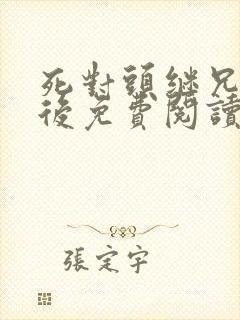 死對頭繼兄
後免費閱讀
張定宇